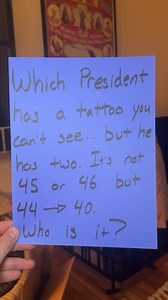 Which President
has a tattoo you
can't see... but he
has two. It's not
45 or 46 but
44 → 40.
Who is it?